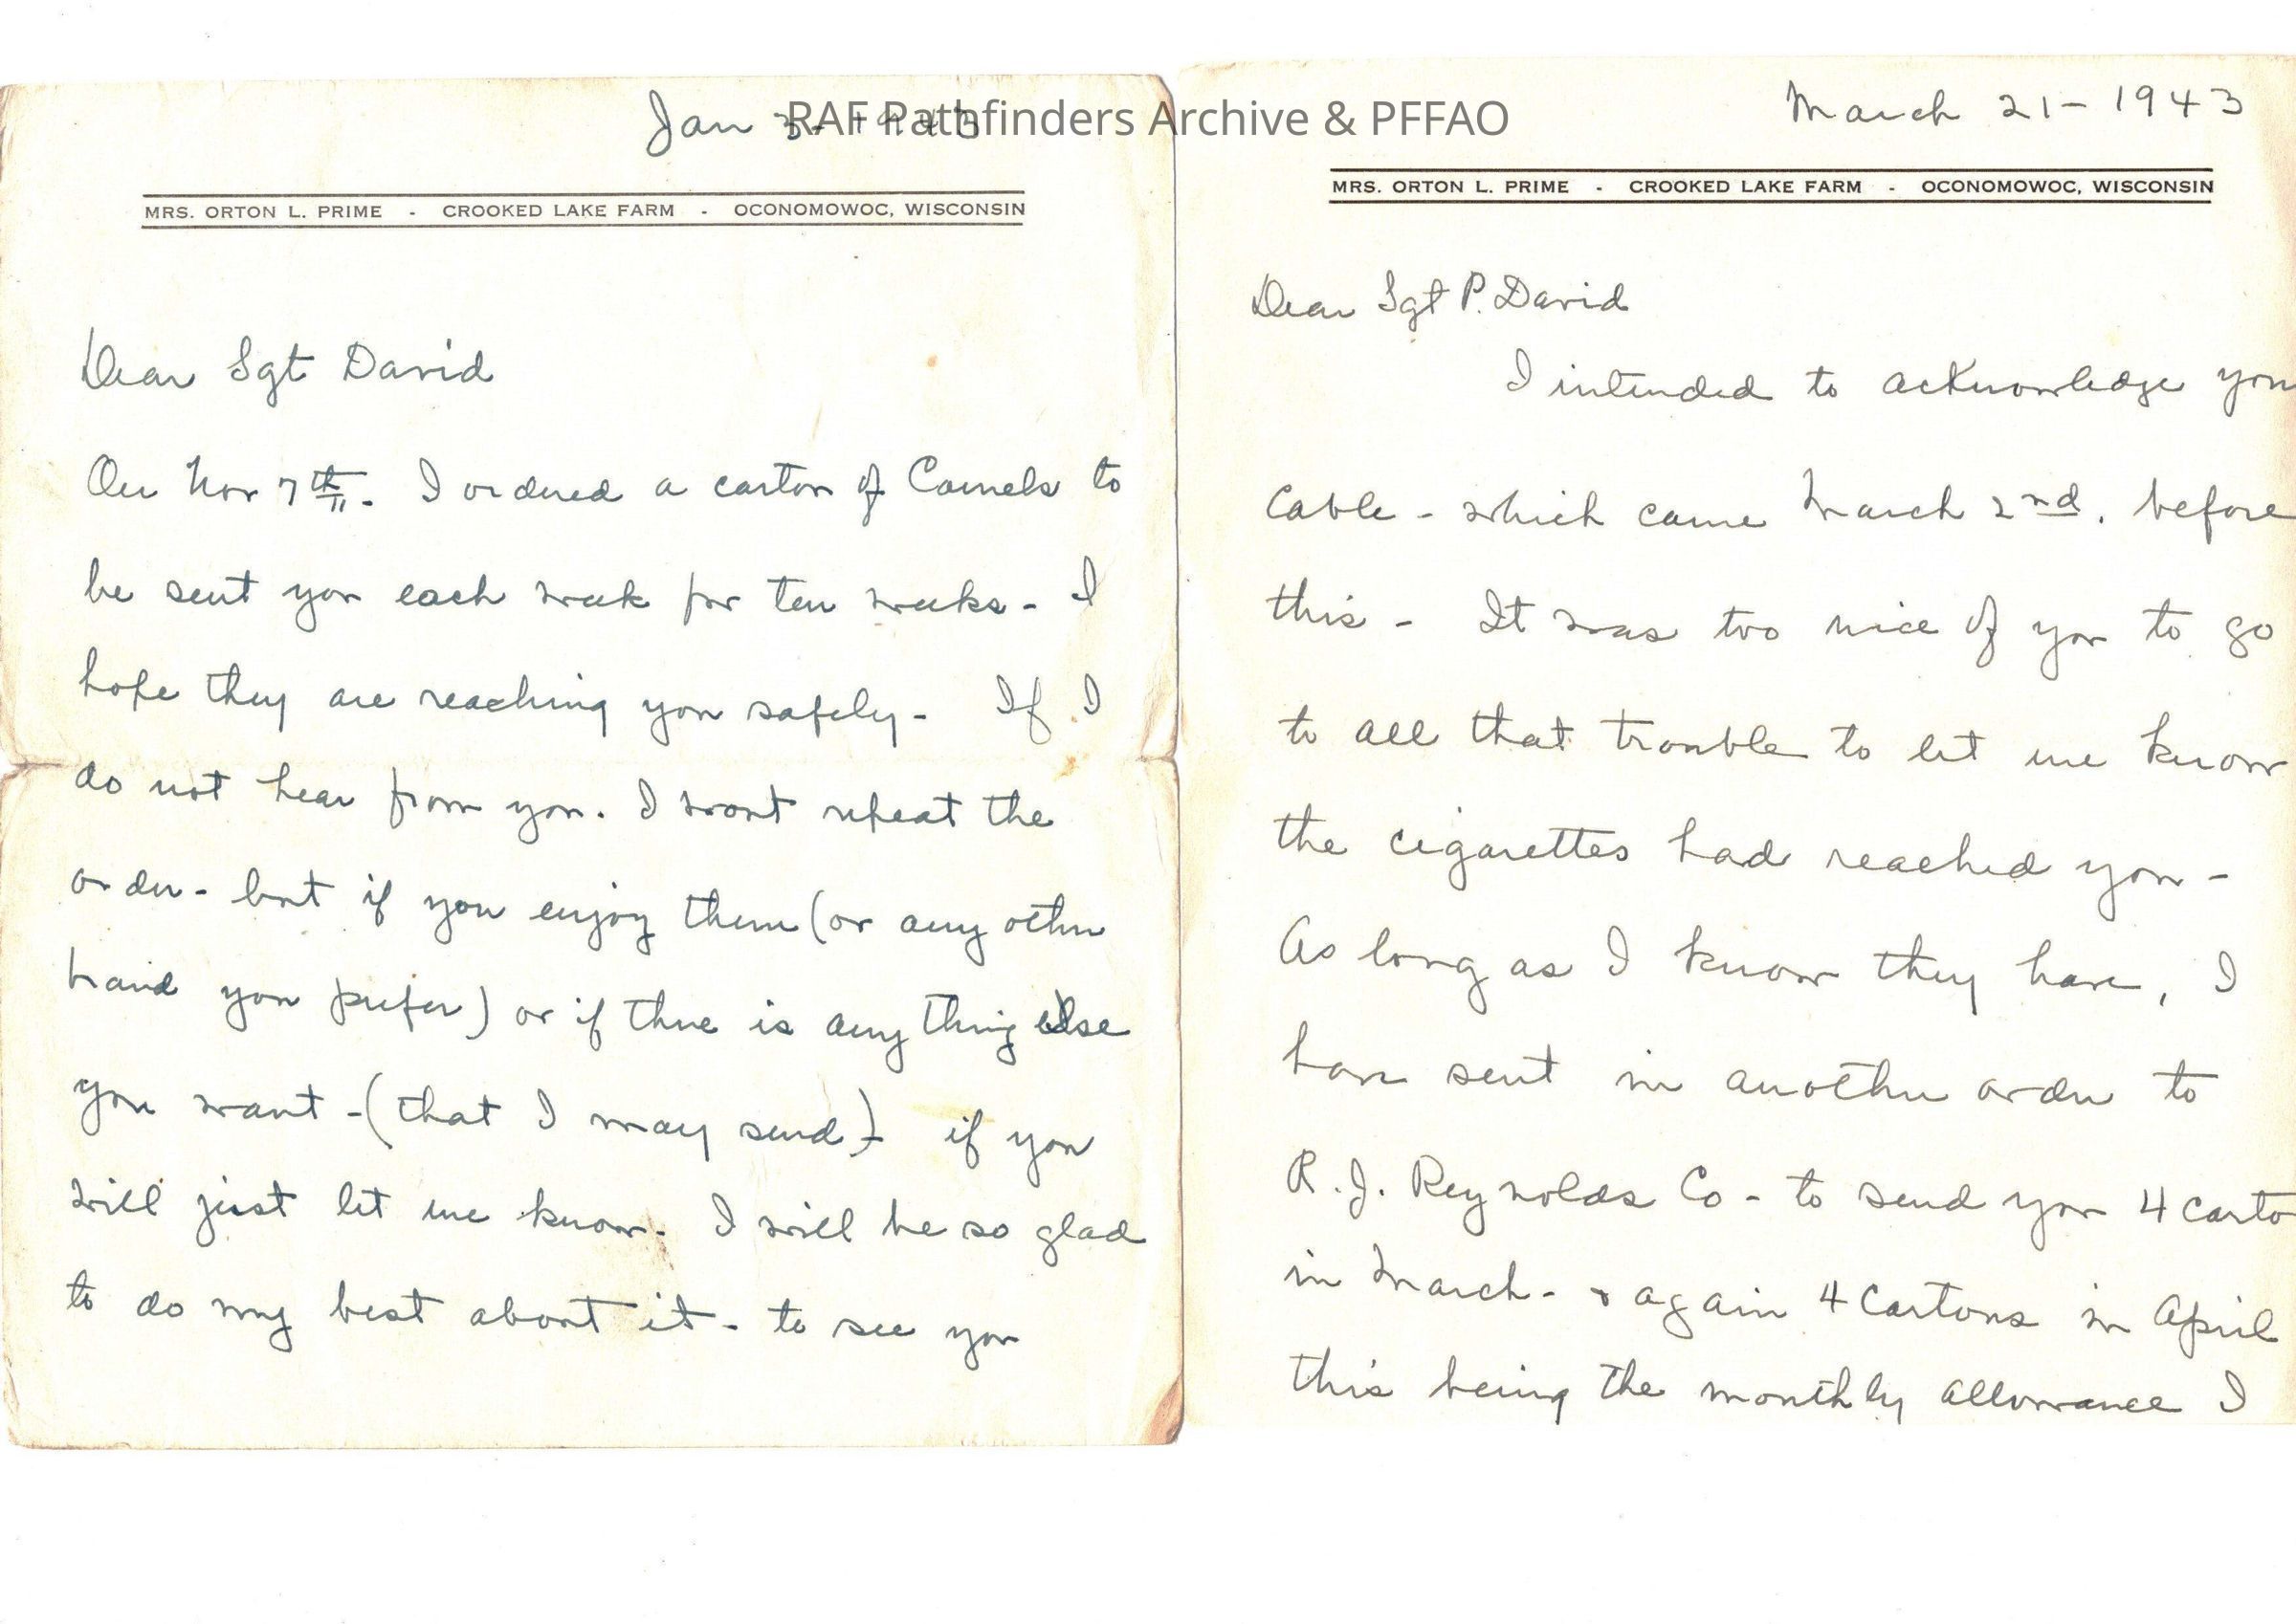 RAF Pathfinders Archive & PFFAO
Jan 3 - 1943
MRS. ORTON L. PRIME - CROOKED LAKE FARM - OCONOMOWOC, WISCONSIN
Dear Sgt David
On Nov 7th. I ordered a carton of Camels to
be sent you each week for ten weeks - I
hope they are reaching you safely - If I
do not hear from you. I wont repeat the
order - but if you enjoy them (or any other
brand you prefer) or if there is any thing else
you want - (that I may send) - if you
will just let me know. I will be so glad
to do my best about it - to see you
March 21 - 1943
MRS. ORTON L. PRIME - CROOKED LAKE FARM - OCONOMOWOC, WISCONSIN
Dear Sgt P. David
I intended to acknowledge you
Cable - which came March 2nd. before
this - It was too nice of you to go
to all that trouble to let me know
the cigarettes had reached you -
As long as I know they have, I
have sent in another order to
R. J. Reynolds Co - to send you 4 carto
in March - & again 4 Cartons in April
this being the monthly allowance I